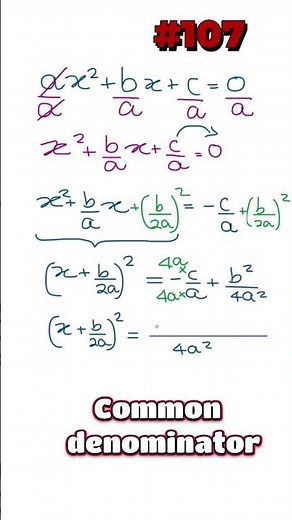 #107
ax²/a + bx/a + c/a = 0/a
x² + b/a x + c/a = 0
x² + b/a x + (b/2a)² = -c/a + (b/2a)²
(x + b/2a)² = 4a× -c/4a× a + b²/4a²
(x + b/2a)² = ──── / 4a²
Common
denominator